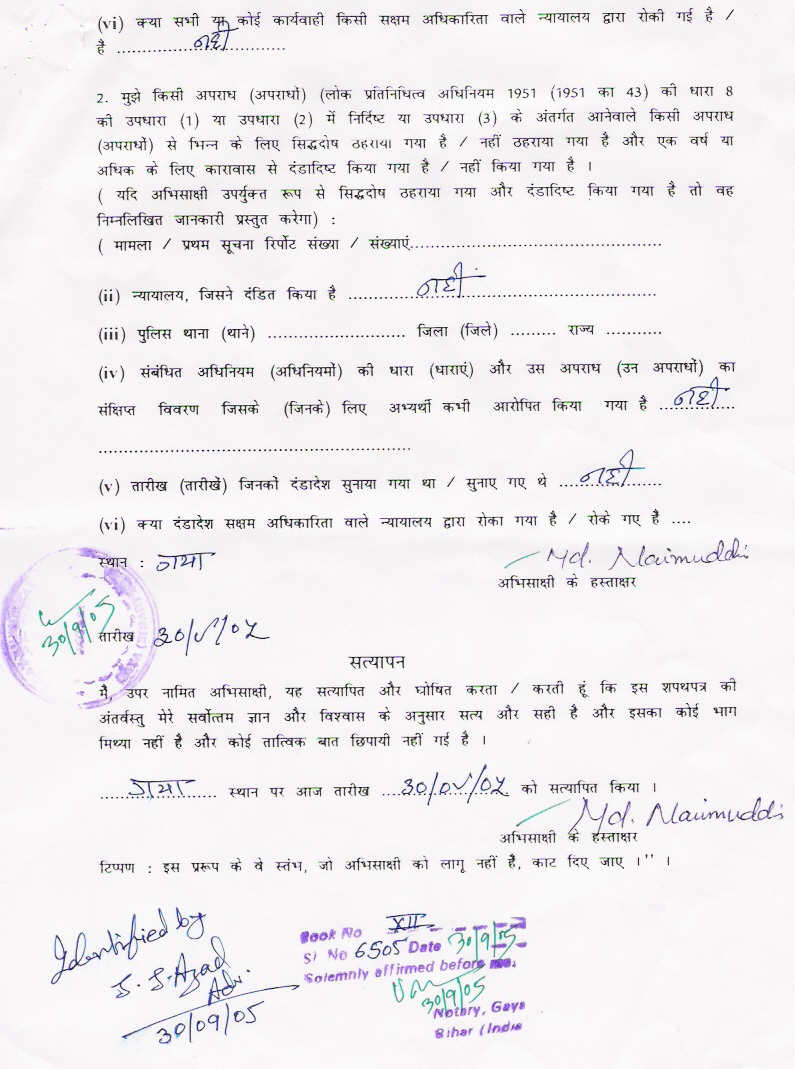 (vi) क्या सभी या कोई कार्यवाही किसी सक्षम अधिकारिता वाले न्यायालय द्वारा रोकी गई है /
है .............नहीं.............
2. मुझे किसी अपराध (अपराधों) (लोक प्रतिनिधित्व अधिनियम 1951 (1951 का 43) की धारा 8
की उपधारा (1) या उपधारा (2) में निर्दिष्ट या उपधारा (3) के अंतर्गत आनेवाले किसी अपराध
(अपराधों) से भिन्न के लिए सिद्धदोष ठहराया गया है / नहीं ठहराया गया है और एक वर्ष या
अधिक के लिए कारावास से दंडादिष्ट किया गया है / नहीं किया गया है ।
( यदि अभिसाक्षी उपर्युक्त रूप से सिद्धदोष ठहराया गया और दंडादिष्ट किया गया है तो वह
निम्नलिखित जानकारी प्रस्तुत करेगा) :
( मामला / प्रथम सूचना रिर्पोट संख्या / संख्याएं.............................................
(ii) न्यायालय, जिसने दंडित किया है ............नहीं...............................
(iii) पुलिस थाना (थाने) ........................ जिला (जिले) ......... राज्य ...........
(iv) संबंधित अधिनियम (अधिनियमों) की धारा (धाराएं) और उस अपराध (उन अपराधों) का
संक्षिप्त विवरण जिसके (जिनके) लिए अभ्यर्थी कभी आरोपित किया गया है ...नहीं...
.........................................................
(v) तारीख (तारीखें) जिनकों दंडादेश सुनाया गया था / सुनाए गए थे ....नहीं......
(vi) क्या दंडादेश सक्षम अधिकारिता वाले न्यायालय द्वारा रोका गया है / रोके गए है ....
स्थान : गया
Md. Naimuddin
अभिसाक्षी के हस्ताक्षर
30/9/05
तारीख 30/9/05
सत्यापन
मैं, उपर नामित अभिसाक्षी, यह सत्यापित और घोषित करता / करती हूं कि इस शपथपत्र की
अंतर्वस्तु मेरे सर्वोत्तम ज्ञान और विश्वास के अनुसार सत्य और सही है और इसका कोई भाग
मिथ्या नहीं है और कोई तात्विक बात छिपायी नहीं गई है ।
......गया...... स्थान पर आज तारीख ...30/09/05... को सत्यापित किया ।
Md. Naimuddin
अभिसाक्षी के हस्ताक्षर
टिप्पण : इस प्ररूप के वे स्तंभ, जो अभिसाक्षी को लागू नहीं है, काट दिए जाए ।'' ।
Identified by
S. S. Azad
Adv.
30/09/05
Book No XII
Sl No 6505 Date 30/9/05
Solemnly affirmed before me.
30/9/05
Notary, Gaya
Bihar (India